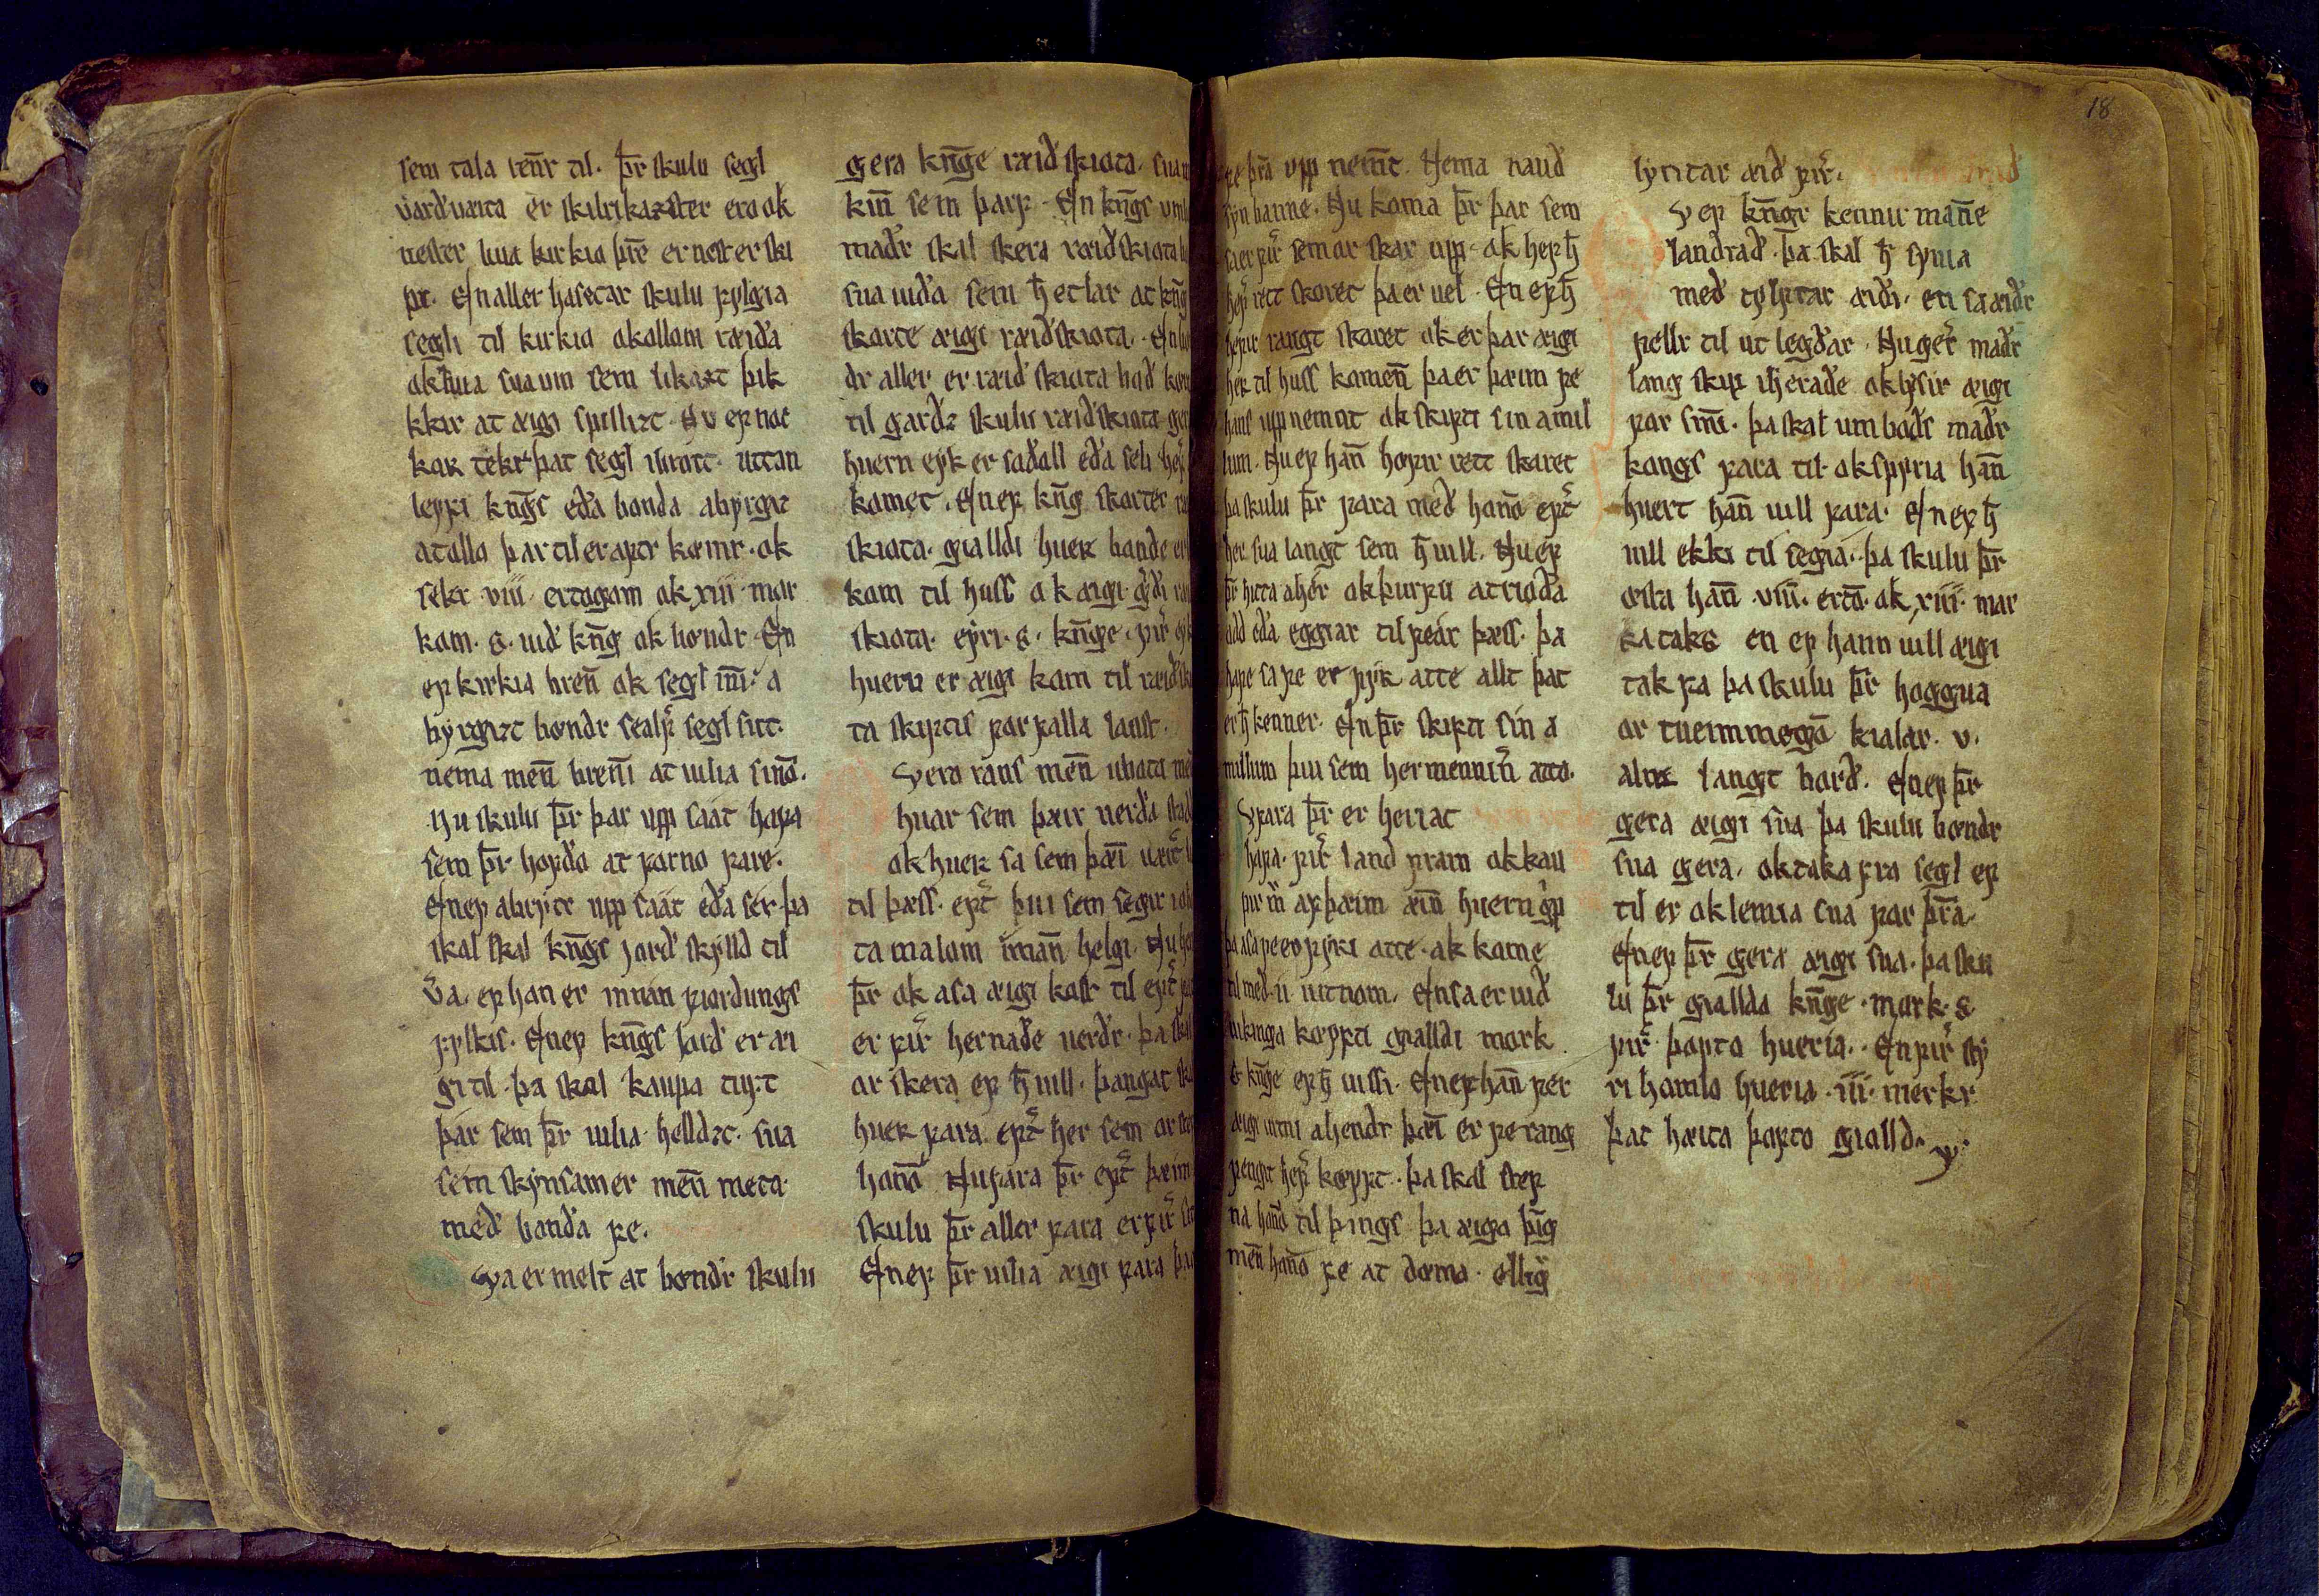 sem tala renr til. þr skulu segl
varðuæita er skilrikazster ero ok
nester bua kirkio þre er nester ski
pr. En aller hasetar skulu fylgia
segli til kirkio ok allom ræiða
ok bua sua um sem likazt þik
kir at æigi spillizt. Nu ef noc
kor tekr þat segl ibrott. uttan
leyfi kngs eða bonda abyrgiz
at ollo þar til er aptr kømr. ok
sekr viii ertogom ok xiii mor
kom. s. við kng ok bøndr. En
ef kirkia brenn ok segl inni. a
byrgizt bøndr sealfir segl sitt.
nema menn brenni at uilia sino.
Nu skulu þr þar upp saat hafa
sem þr hofðo at forno fare.
En ef abrytr upp saat eða ser. þa
skal skal kngs jorð skylld til
va. ef han er innan fiordungs
fylkis. En ef kngs iorð er æi
gi til. þa skal kaupa tuft
þar sem þr uilia helldzt. sua
sem skynsamer menn meta.
með bonda fe.
Sva er melt at bøndr skulu
gera knge ræið skiota. sua
kin sem þarf. En kngs um
maðr skal skera ræið skiota
sua uiða sem h ętlar at kng
skorte æigi ræiðskiota. En
dr aller er ræið skiota boð kom
til garðz skulu ræiðskiota ger
huern eyk er saðall eða seli hef
komet. En ef kng skorter
skiota. gialldi huer bonde er
kom til huss ok æigi gerði
skiota. eyri. s. knge. fir
huern er æigi kom til ræið
ta skiptis forfalla laust.
Nv ero rans menn ubota
huar sem þæir uerða
ok huer sa sem þæi
til þess. ept þui sem segir
ta malom i mann helgi. Nu
þr ok asa æigi kostr til ept
er fir hernaðe uerðr. þa skal
ar skera ef h uill. þangat
huer fara ept her sem ar
hano. Nu fara þr ept þæim
skulu þr aller fara er fir
En ef þr uilia æigi fara þa
fe þra upp nemt. Nema nauð
syn banne. Nu koma þr þar sem
sa er fir sem ar skar upp. ok hef h
hefr rett skoret þa er uel. En ef h
hefir rangt skaret ok er þar æigi
her til huss komenn þa er þæim fe
hans upp nemnt ok skipti sin amil
lum. Nu ef hann hofir rett skaret
þa skulu þr fara með hano ept
her. sua langt sem h uill. Nu ef
þr hitta a her ok þurfu at rioða
odd eða eggiar til fear þæss. þa
hafe sa fe er fyrr atte allt þat
er h kenner. En þr skipti sin a
millum þui sem hermennin atto.
Nv fara þr er heriat
hafa. fir land fram ok kau
pir m af þæim æin huern grip
þa asa fe er fyrri atte. ok kome
til með. ii. uitnom. En sa er uið
uikinga køypti gialldi mork
s. knge ef h uissi. En ef hann fer
æigi uitni a hendr þæi er fe rang
fengit hef køypt. þa skal stef
na hano til þings þa æigo þing
men hano fe at døma. ellig
lyritar æið fir.
Nv ef kngr kennir manne
landrað. þa skal h synia
með tylftar æiði. en sa æiðr
fellr til utlegðar. Nu ger maðr
lang skip iheraðe ok lysir æigi
for sinni. þa skal umboðs maðr
kongs fara til. ok spyria hann
huert hann uill fara. En ef h
uill ekki til segia. þa skulu þr
æsta hann. viii. erto. ok xiii. mar
ka taks en ef hann uill æigi
tak fa þa skulu þr hoggua
or tueim megom kialar. v.
alna langt borð. En ef þr
gera æigi sua þa skulu bøndr
sua gera. ok taka fra segl ef
til er ok lemia sua for þra.
En ef þr gera æigi sua. þa sku
lu þr giallda knge. mork. s.
fir þopto hueria. En fir sty
ri homlo hueria. iii. merkr
þat hæita þopto giolld.
18